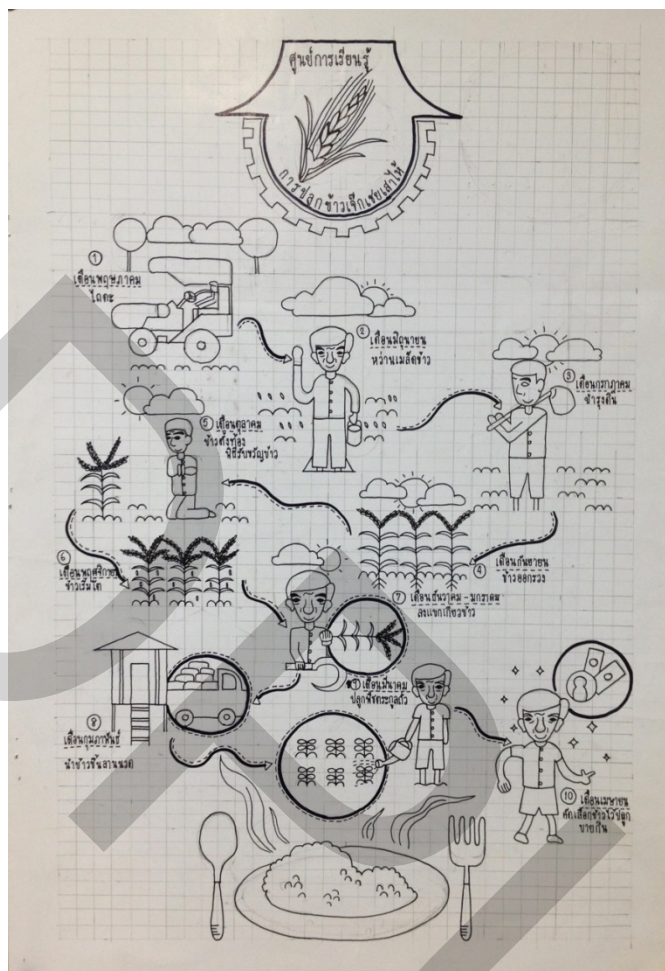 ศูนย์การเรียนรู้
การปลูกข้าวเจ๊กเชยเสาไห้
①
เดือนพฤษภาคม
ไถดะ
②
เดือนมิถุนายน
หว่านเมล็ดข้าว
③
เดือนกรกฎาคม
บำรุงดิน
④
เดือนกันยายน
ข้าวออกรวง
⑤ เดือนตุลาคม
ข้าวตั้งท้อง
พิธีรับขวัญข้าว
⑥
เดือนพฤศจิกายน
ข้าวเริ่มโต
⑦ เดือนธันวาคม - มกราคม
ลงแขกเกี่ยวข้าว
⑧
เดือนกุมภาพันธ์
นำข้าวขึ้นลานนวด
⑨ เดือนมีนาคม
ปลูกพืชตระกูลถั่ว
⑩ เดือนเมษายน
คัดเลือกข้าวไว้ปลูก
ขายกิน